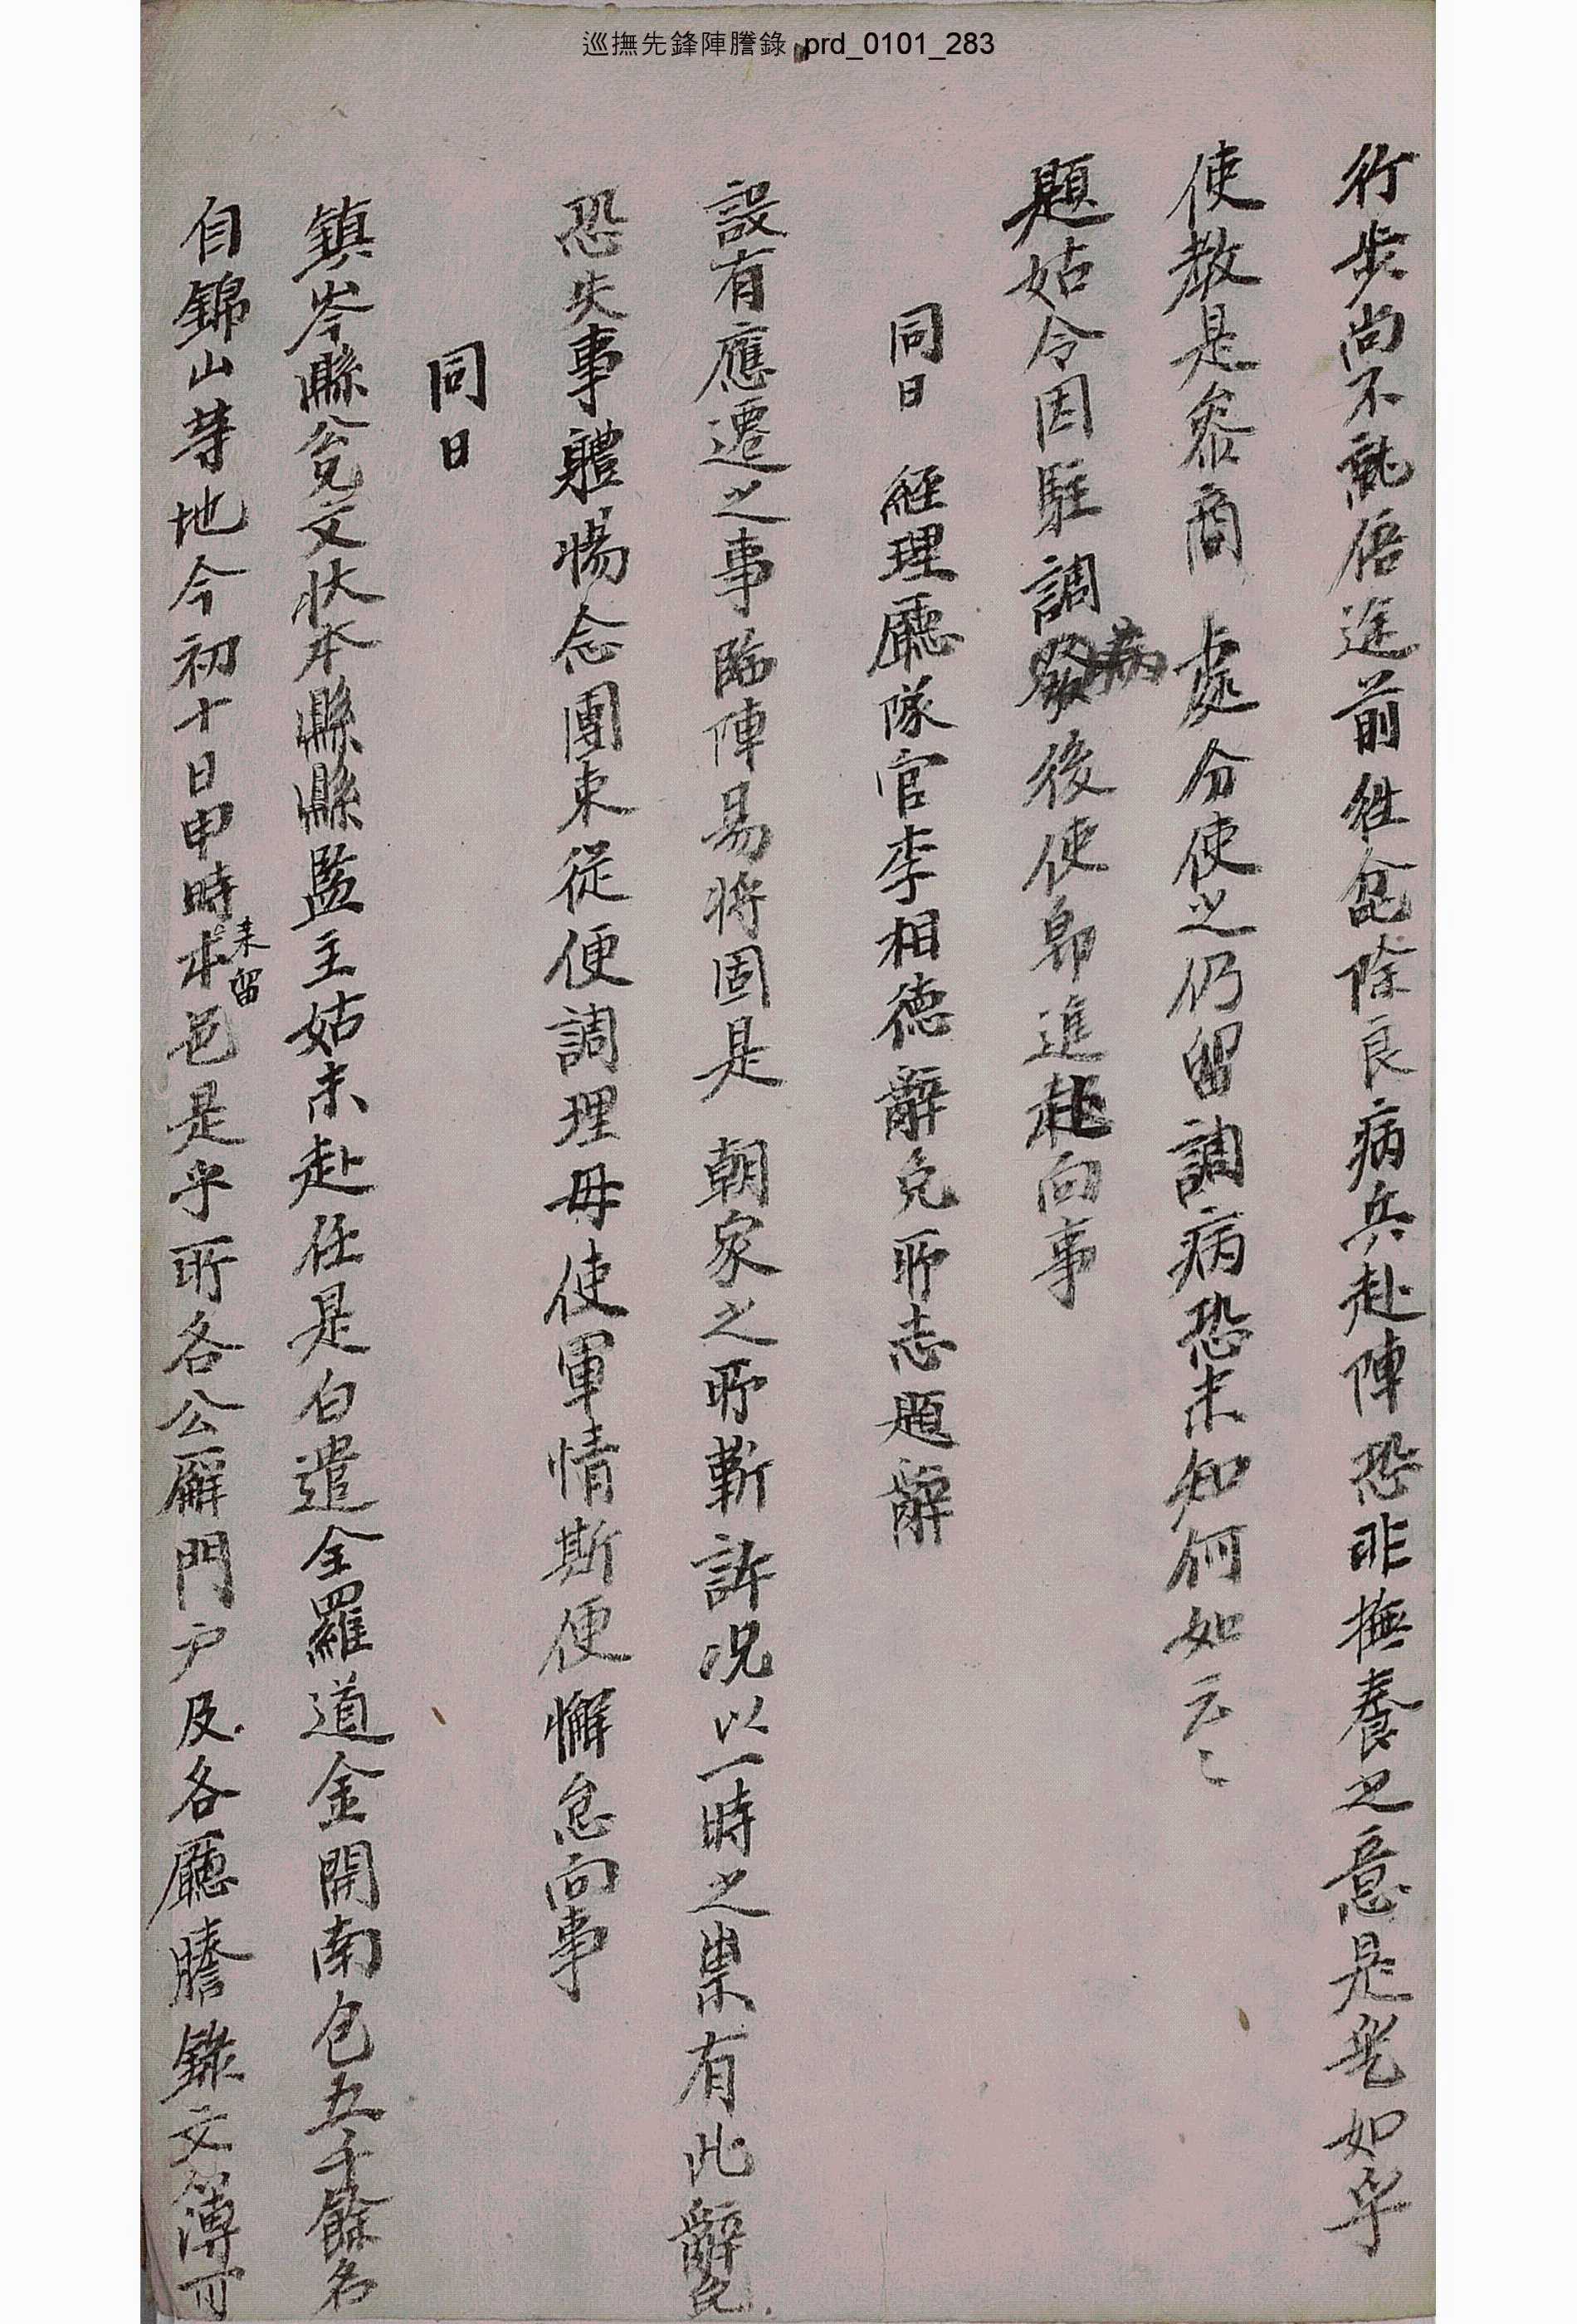 巡撫先鋒陣謄錄 prd_0101_283
行步尚不能倍進前往僉除良病兵赴陣恐非撫養之意是乯如乎
使教是參商 處分使之仍留調病恐未知何如云〻
題姑令因駐調病發後使卽進赴向事
同日 經理廳隊官李相德辭免所志題辭
設有應遷之事臨陣易將固是 朝家之所靳許况以一時之祟有此辭免
恐失事體惕念團束從便調理毋使軍情斯便懈怠向事
同日
鎮岑縣公兄文狀本縣縣監主姑未赴任是白遣全羅道金開南包五千餘名
自錦山等地今初十日申時來留本邑是乎所各公廨門戶及各廳謄錄文簿可